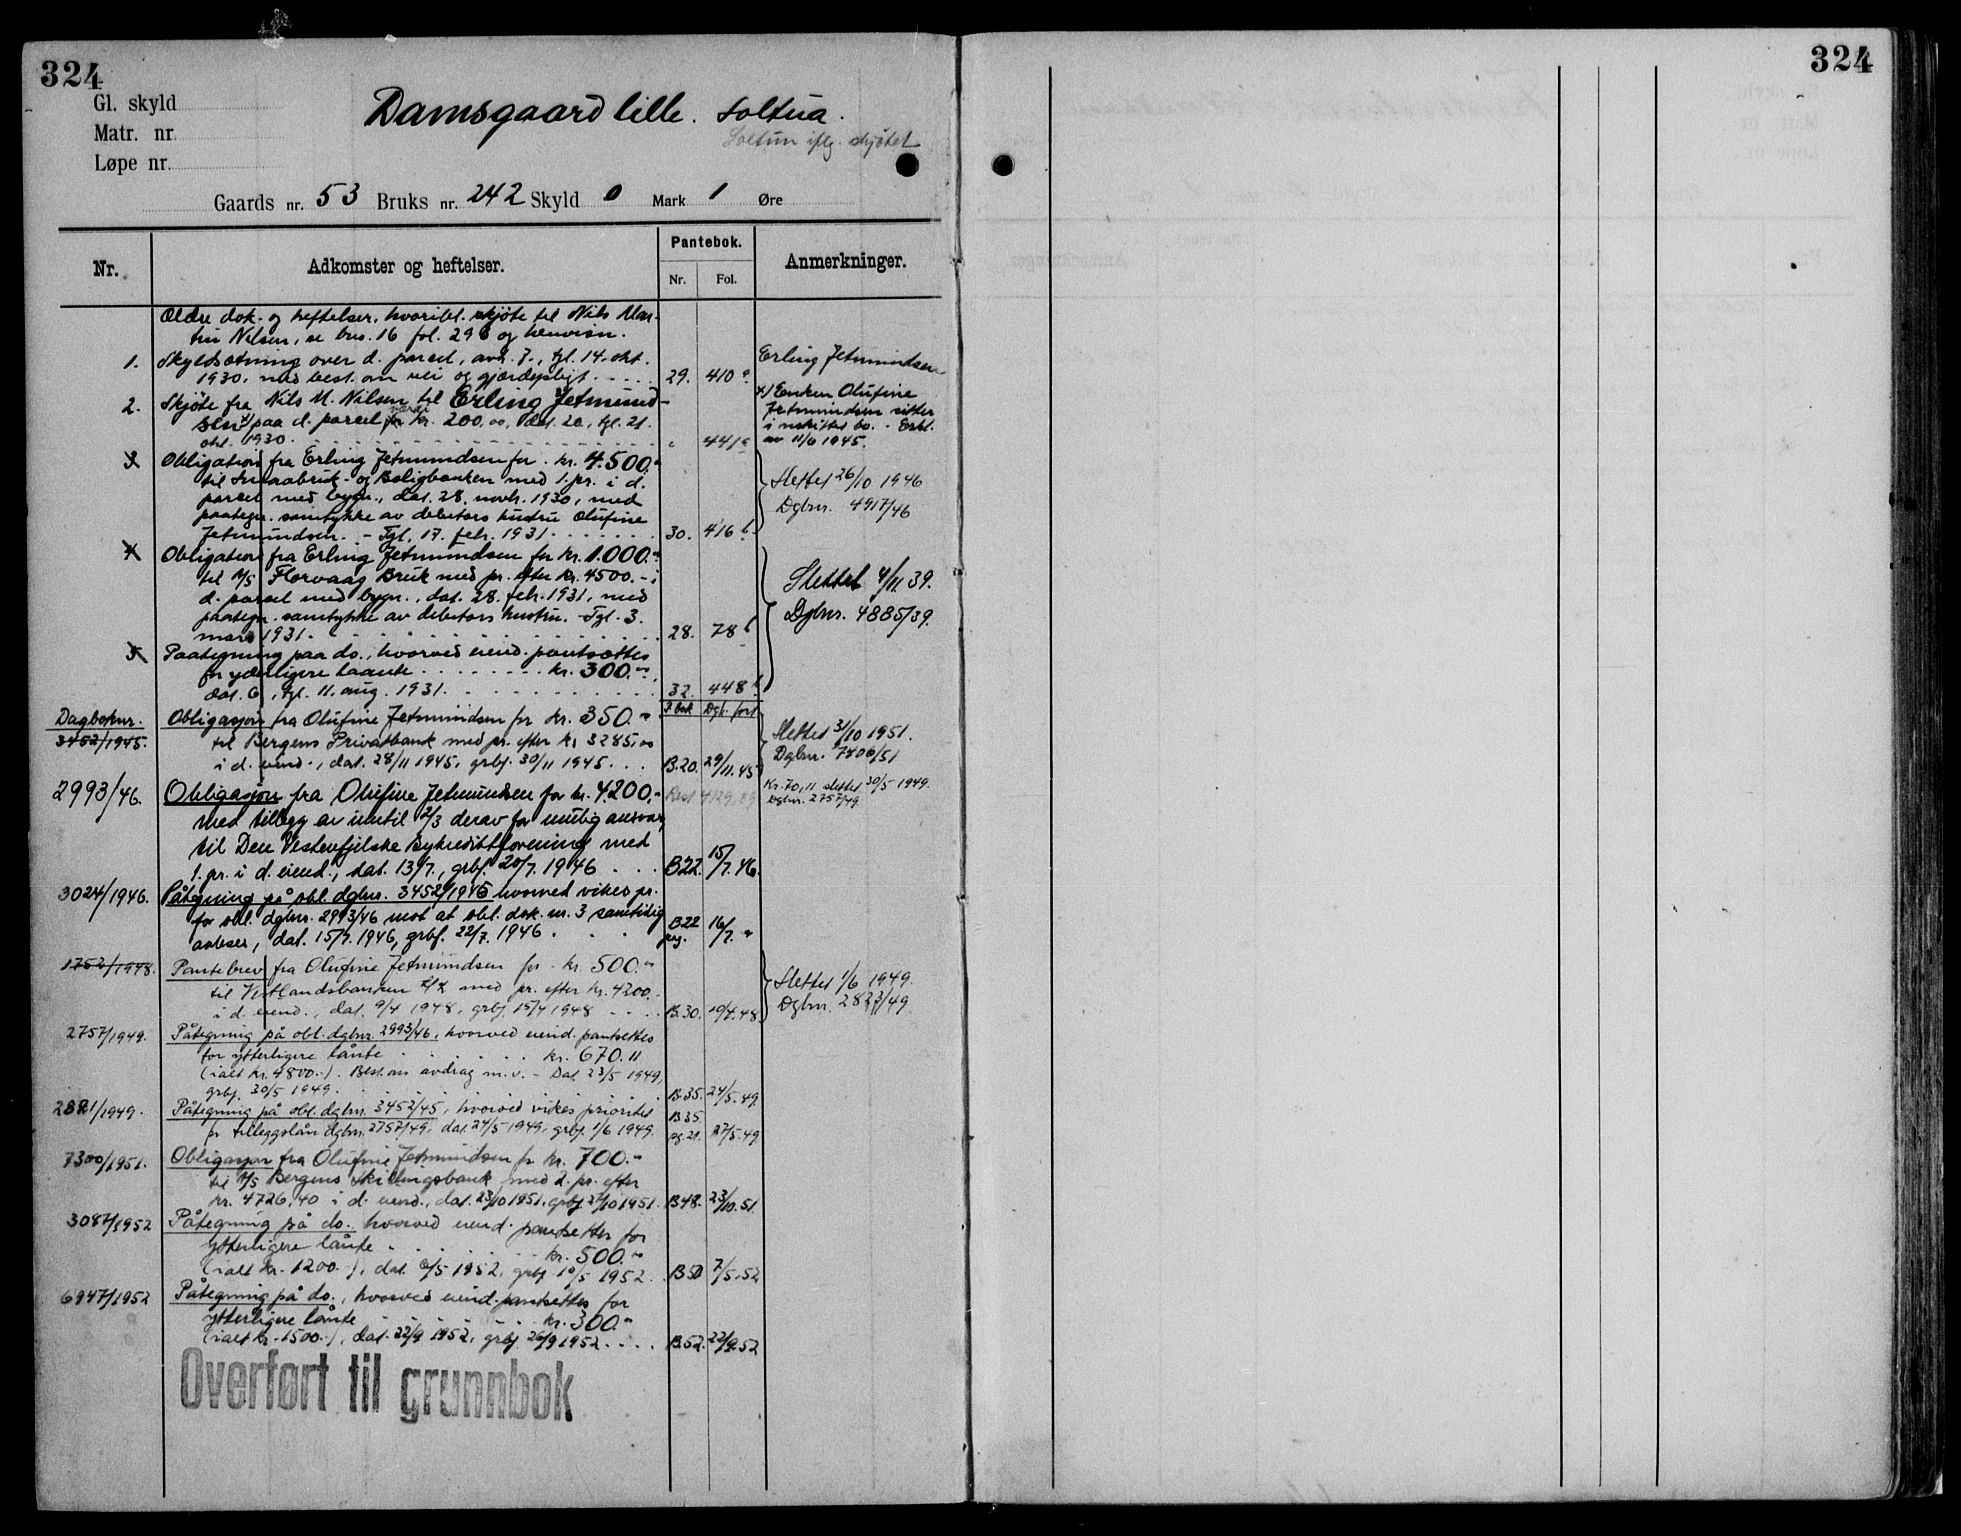 324
324
Gl. skyld
Matr. nr.
Løpe nr.
Damsgaard lille. Soltua.
Soltun iflg. skjøtet
Gaards nr. 53 Bruks nr. 242 Skyld 0 Mark 1 Øre
Nr. Adkomster og heftelser. Pantebok. Nr. Fol. Anmerkninger.
Ældre dok. og heftelser, hvoribl. skjøte til Nils Mar-
tin Nilsen, se brs. 16 fol. 296 og henvisn.
1. Skyldsætning over d. parcel, avh. 7., tgl. 14. okt.
1930, med best. om vei og gjærdepligt. 29. 410 a
Erling Jetmundsen
2. Skjøte fra Nils M. Nilsen til Erling Jetmund-
sen x) paa d. parcel værdi kr. 200,00, dat. 20, tgl. 21.
okt. 1930. " 441 a
x) Enken Olufine
Jetmundsen sitter
i uskiftet bo. - Erkl.
av 11/6 1945.
3. Obligation fra Erling Jetmundsen for kr. 4.500.-
til Smaabruk- og Boligbanken med 1. pr. i d.
parcel med bygn., dat. 28. novbr. 1930, med
paategn. samtykke av debitors hustru Olufine
Jetmundsen. - Tgl. 17. febr. 1931. 30. 416 b
Slettet 26/10 1946
Dgbnr. 4917/46
4. Obligation fra Erling Jetmundsen for kr. 1.000.-
til A/S Florvaag Bruk med pr. efter kr. 4500.- i
d. parcel med bygn., dat. 28. febr. 1931, med
paategn. samtykke av debitors hustru. - Tgl. 3.
mars 1931. 28. 78 b
Slettet 4/11 39.
Dgbnr. 4885/39.
5. Paategning paa do., hvorved eiend. pantsættes
for yderligere laante kr. 300.-,
dat. 6., tgl. 11. aug. 1931. 32. 448 b
P.bok Dgb. ført
Dagboknr.
3452/1945. Obligasjon fra Olufine Jetmundsen for kr. 350.-
til Bergens Privatbank med pr. efter kr. 3285,00
i d. eiend., dat. 28/11 1945, grbf. 30/11 1945. B.20. 29/11.45
Slettet 31/10 1951.
Dgbnr. 7406/51
2993/46. Obligasjon fra Olufine Jetmundsen for kr. 4.200.- Rest 4129,89
med tillegg av inntil 2/3 derav for mulig ansvar,
til Den Vestenfjelske Bykredittforening med
1. pr. i d. eiend., dat. 13/7., grbf. 20/7. 1946 B22. 15/7.46.
Kr. 70,11 slettet 30/5 1949.
Dgbnr. 2757/49
3024/1946. Påtegning på obl. dgbnr. 3452/1945 hvorved vikes pr.
for obl. dgbnr. 2993/46 mot at obl. dok. nr. 3 samtidig
avleses, dat. 15/7. 1946, grbf. 22/7. 1946 B22 16/7. "
1752/1948. Pantebrev fra Olufine Jetmundsen for kr. 500.-
til Vestlandsbanken A/L med pr. efter kr. 4200.-
i d. eiend., dat. 9/4 1948, grbf. 15/4 1948 B.30. 10/4.48
Slettet 1/6 1949.
Dgbnr. 2823/49
2757/1949. Påtegning på obl. dgbnr. 2993/46, hvorved eiend. pantsettes
for ytterligere lånte kr. 670.11
(ialt kr. 4800.-). Best. om avdrag m.v. - Dat. 23/5 1949,
grbf. 30/5 1949. B.35. 24/5.49.
2821/1949. Påtegning på obl. dgbnr. 3452/45, hvorved vikes prioritet B35
for tilleggslån dgbnr. 2757/49, dat. 24/5 1949, grbf. 1/6 1949. pg. 21. 27/5.49
7300/1951. Obligasjon fra Olufine Jetmundsen for kr. 700.-
til A/S Bergens Skillingsbank med 2. pr. efter
kr. 4726,40 i d. eiend., dat. 23/10 1951, grbf. 27/10 1951. B48. 23/10.51.
3087/1952 Påtegning på do., hvorved eiend. pantsettes for
ytterligere lånte kr. 500.-
(ialt kr. 1200.-), dat. 6/5 1952, grbf. 10/5 1952. B50 7/5.52
6947/1952 Påtegning på do., hvorved eiend. pantsettes for
ytterligere lånte kr. 300.-
(ialt kr. 1500.-), dat. 22/9 1952, grbf. 26/9 1952. B.52. 22/9.52
Overført til grunnbok